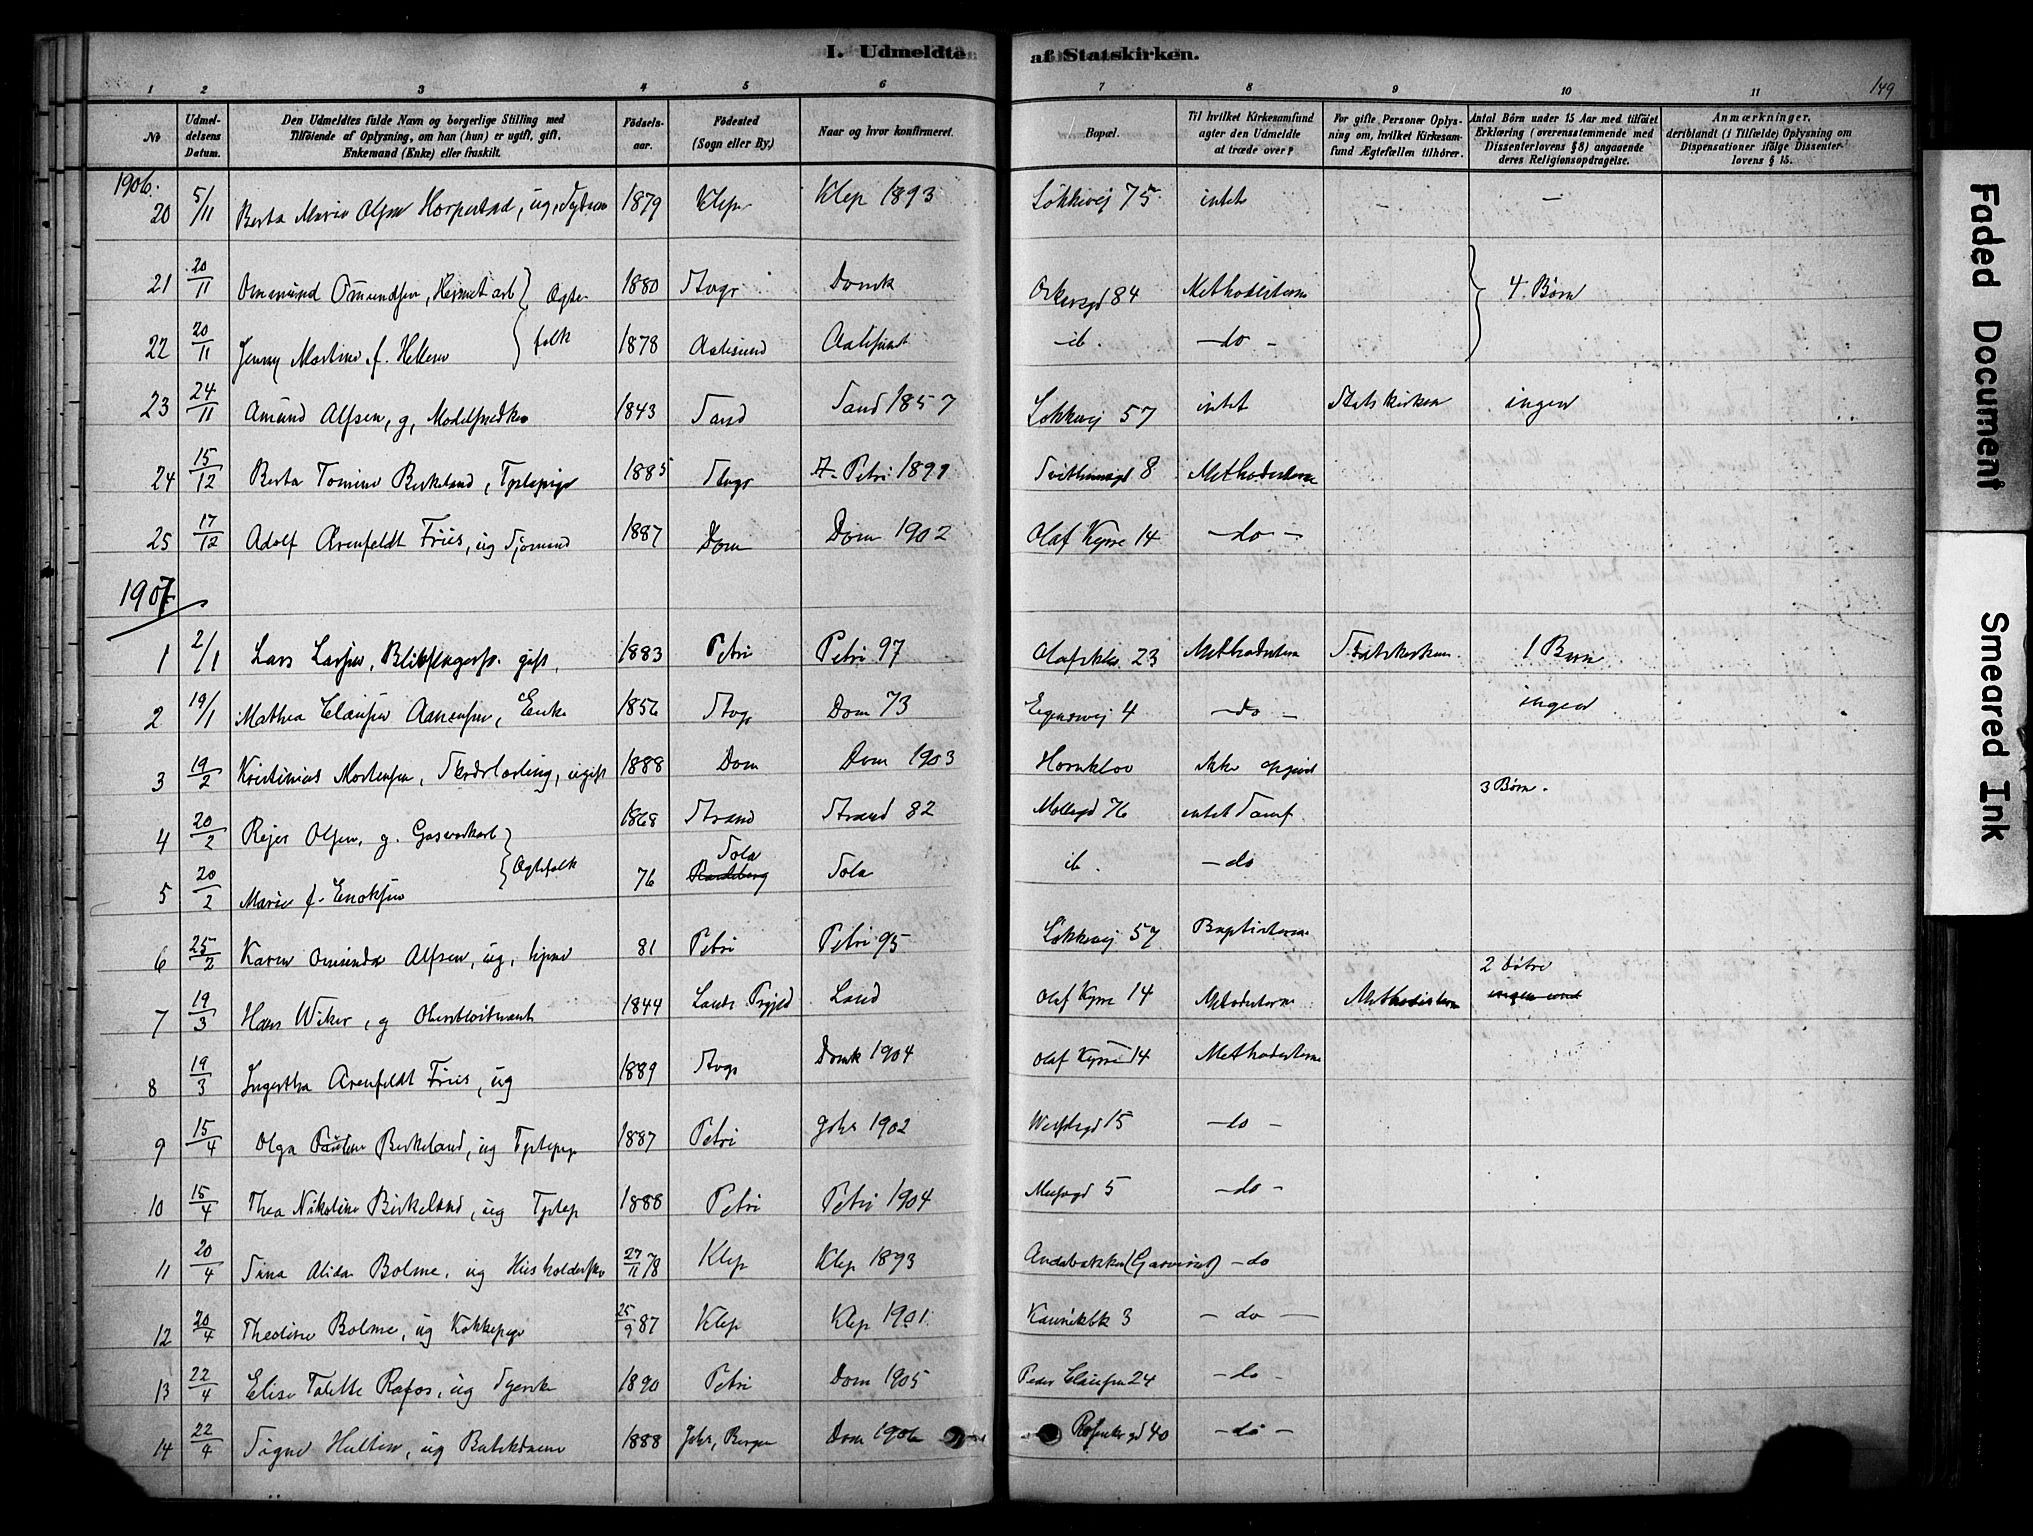 I. Udmeldte af Statskirken.
149
1 2 3 4 5 6 7 8 9 10 11
No
Udmeldelsens Datum.
Den Udmeldtes fulde Navn og borgerlige Stilling med
Tilföiende af Oplysning, om han (hun) er ugift, gift,
Enkemand (Enke) eller fraskilt.
Födselsaar.
Födested
(Sogn eller By.)
Naar og hvor konfirmeret.
Bopæl.
Til hvilket Kirkesamfund
agter den Udmeldte
at træde over?
For gifte Personer Oplysning om, hvilket Kirkesamfund Ægtefællen tilhörer.
Antal Börn under 15 Aar med tilföiet
Erklæring (overensstemmende med
Dissenterlovens § 8) angaaende
deres Religionsopdragelse.
Anmærkninger,
deriblandt (i Tilfælde) Oplysning om
Dispensationer ifölge Dissenterlovens § 15.
1906.
20 5/11 Berta Marie Olsen Horpestad, ug, 1879 Klep Klep 1893 Løkkevej 75 intet - -
21 20/11 Omenund Omundsen, Hermetarb Ægte- 1880 Stvgr Domk Oskarsgd 84 Methodisterne 4 Børn
22 20/11 Jenny Martine f. folk 1878 Aalesund Aalesund ib. - do -
23 24/11 Amund Alfsen, g, Modelsnedker 1843 Sand Sand 1857 Løkkevej 57 intet Statskirken ingen
24 15/12 Berta Tomine Birkeland, 1885 Stvgr St. Petri 1899 8 Methodisterne
25 17/12 Adolf Arenfeldt Friis, ug Sjømand 1887 Dom Dom 1902 Olaf Kyrre 14 - do -
1907
1 2/1 Lars Larsen, gift, 1883 Petri Petri 97 Olafskl. 23 Methodistern Statskirken 1 Barn
2 19/1 Mathea Clausen Asmensen, Enke 1856 Stvgr Dom 73 4 - do - ingen
3 19/2 Kristinius Mortensen, ugift 1888 Dom Dom 1903 Hornklov ikke opgivet
4 20/2 Rejer Olsen, g. Gasverkarb 1868 Strand Strand 82 Møllegd 76 intet Samf 3 Børn.
Ægtefolk
5 20/2 Marie f. Enoksen 76 Randeberg Sola Sola ib. - do
6 25/2 Karen Omunda Alfsen, ug, hjme 81 Petri Petri 95 Løkkevej 57 Baptisterne
7 19/3 Hans Wiker, g Oberstløitnant 1844 Lands Prgjeld Land Olaf Kyrre 14 Metodisterne Methodistern 2 døtre
8 19/3 Ingertha Arenfeldt Friis, ug 1889 Stvgr Domk 1904 Olaf Kyrre 14 Methodisterne
9 15/4 Olga Pauline Birkeland, ug 1887 Petri Joh 1902 15 - do -
10 15/4 Thea Nikoline Birkeland, ug 1888 Petri Petri 1904 5 - do -
11 20/4 Sina Alida Bolme, ug Husholderske 27/11 78 Klep Klep 1893 Andabakken (Gasverket) - do
12 20/4 Theoline Bolme, ug Kokkepige 25/9 87 Klep Klep 1901. Kannikbk 3 - do -
13 22/4 Elise Talette Rafos, ug Syerske 1890 Petri Dom 1905 Peder Clausen 24 - do -
14 22/4 Signe Hultin, ug Butikdame 1888 Joh, Bergen Dom 1906 Rosenkr gd 40 - do -
Faded Document
Smeared Ink